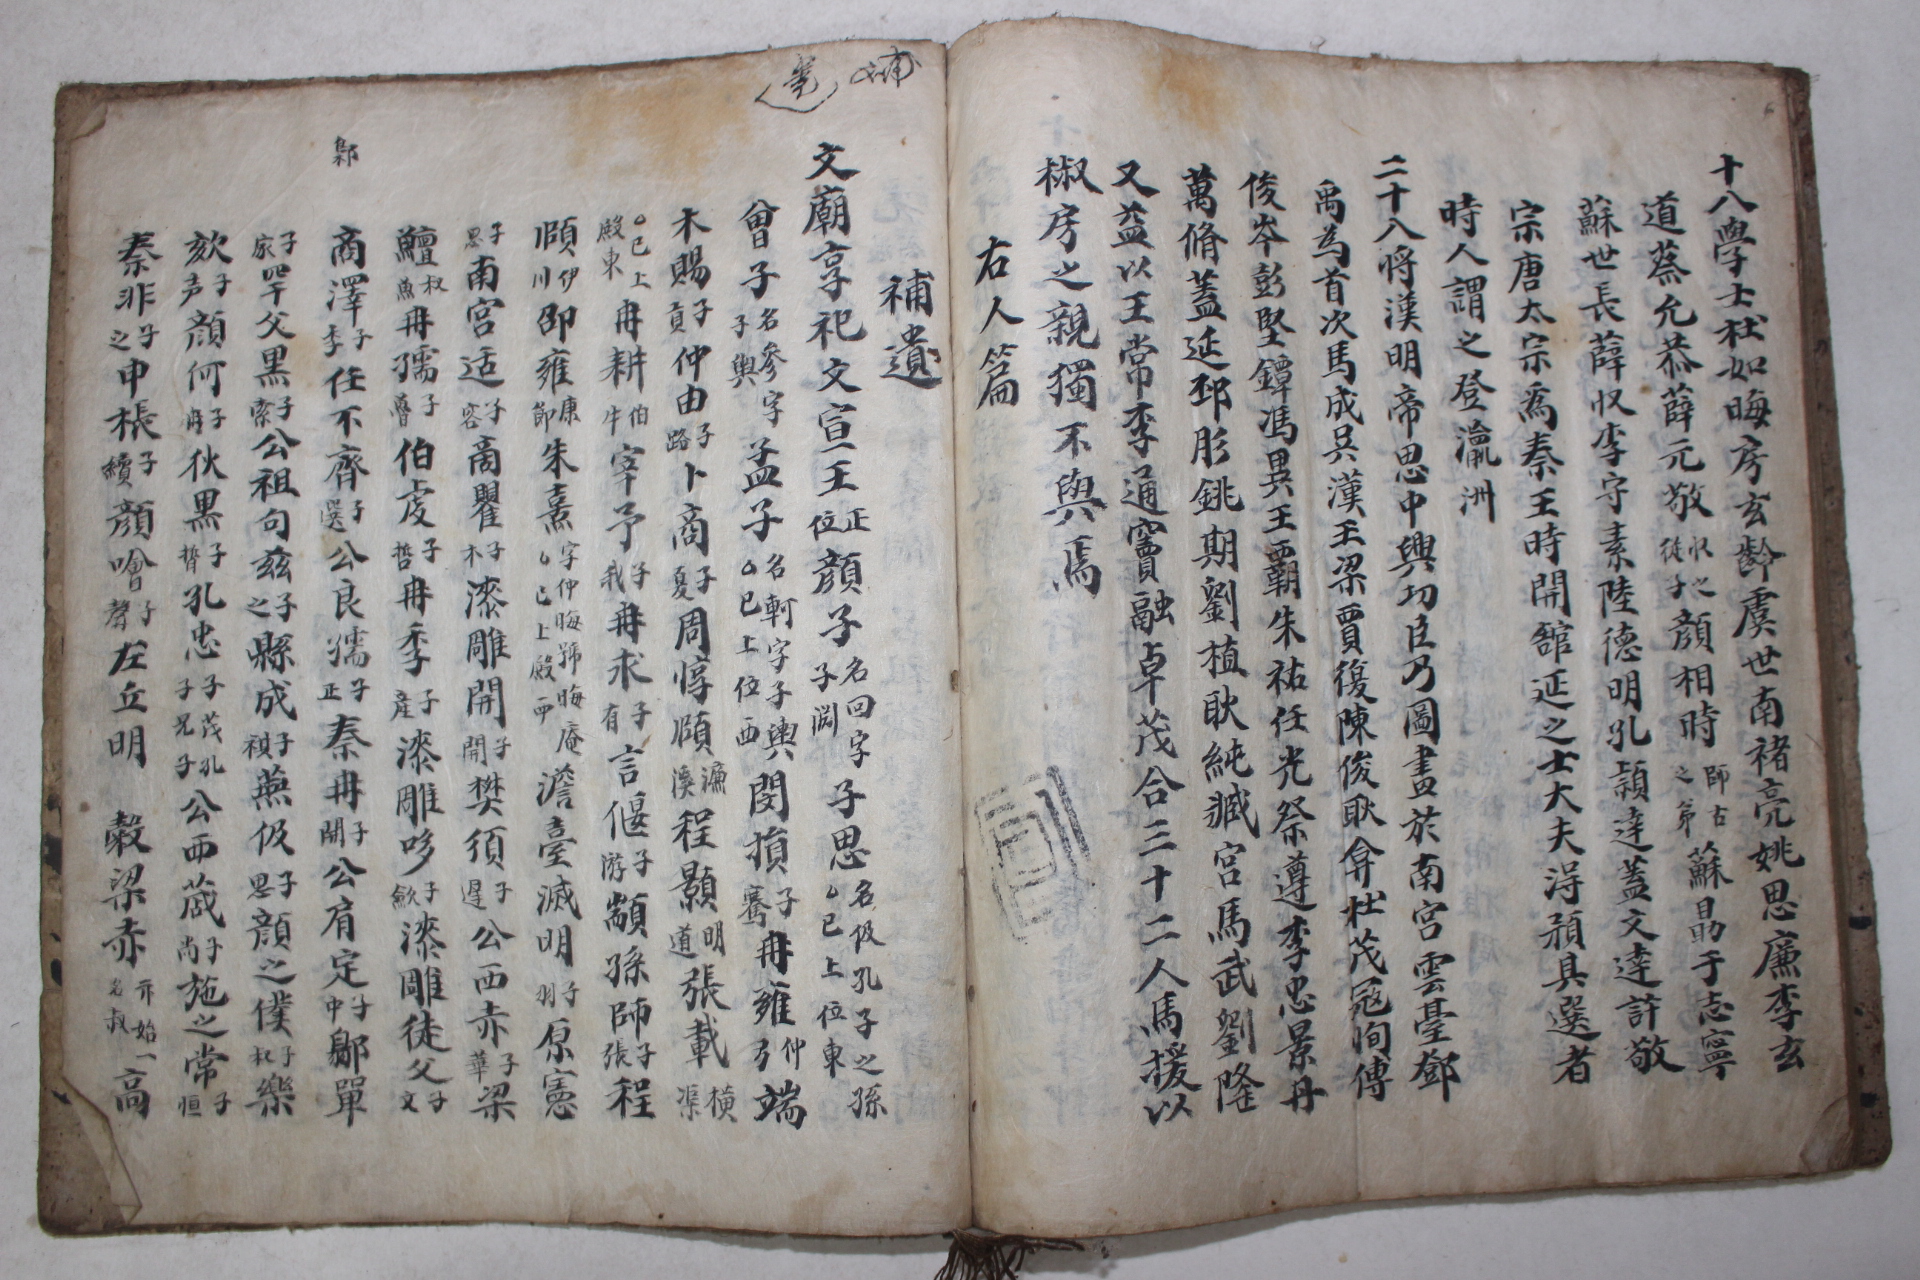 十八學士杜如晦房玄齡虞世南褚亮姚思廉李玄
道蔡允恭薛元敬收之從子顏相時師古之弟蘇勗于志寧
蘇世長薛收李守素陸德明孔穎達蓋文達許敬
宗唐太宗爲秦王時開舘延之士大夫淂預其選者
時人謂之登瀛洲
二十八將漢明帝思中興功臣乃圖畫於南宮雲臺鄧
禹為首次馬成吳漢王梁賈復陳俊耿弇杜茂冦恂傅
俊岑彭堅鐔馮異王覇朱祐任光祭遵李忠景丹
萬脩蓋延邳彤銚期劉植耿純臧宮馬武劉隆
又益以王常李通竇融卓茂合三十二人馬援以
椒房之親獨不與焉
右人篇
補遺
補遺
文廟享祀文宣王正位顏子名回字子淵子思名伋孔子之孫已上位東
曾子名參字子輿孟子名軻字子輿已上位西閔損子騫冉雍仲弓端
木賜子貢仲由子路卜商子夏周惇頤濂溪程顥明道張載橫渠
已上殿東冉耕伯牛宰予子我冉求子有言偃子游顓孫師子張程
頤伊川邵雍康節朱熹字仲晦號晦庵已上殿西澹臺滅明子羽原憲
子思南宮适子容商瞿子木漆雕開子開樊須子遲公西赤子華梁
鱣叔魚冉孺子魯伯虔子哲冉季子產漆雕哆子歛漆雕徒父子文
商澤子季任不齊子選公良孺子正秦冉子開公肩定子中鄡單
鄡
子家罕父黑子索公祖句玆子之縣成子祺燕伋子思顏之僕子叔樂
欬子声顏何子冉狄黑子晳孔忠子茂孔子兄子公西蒧子尚施之常子恒
秦非子之申棖子續顏噲子聲左丘明 穀梁赤名叔高